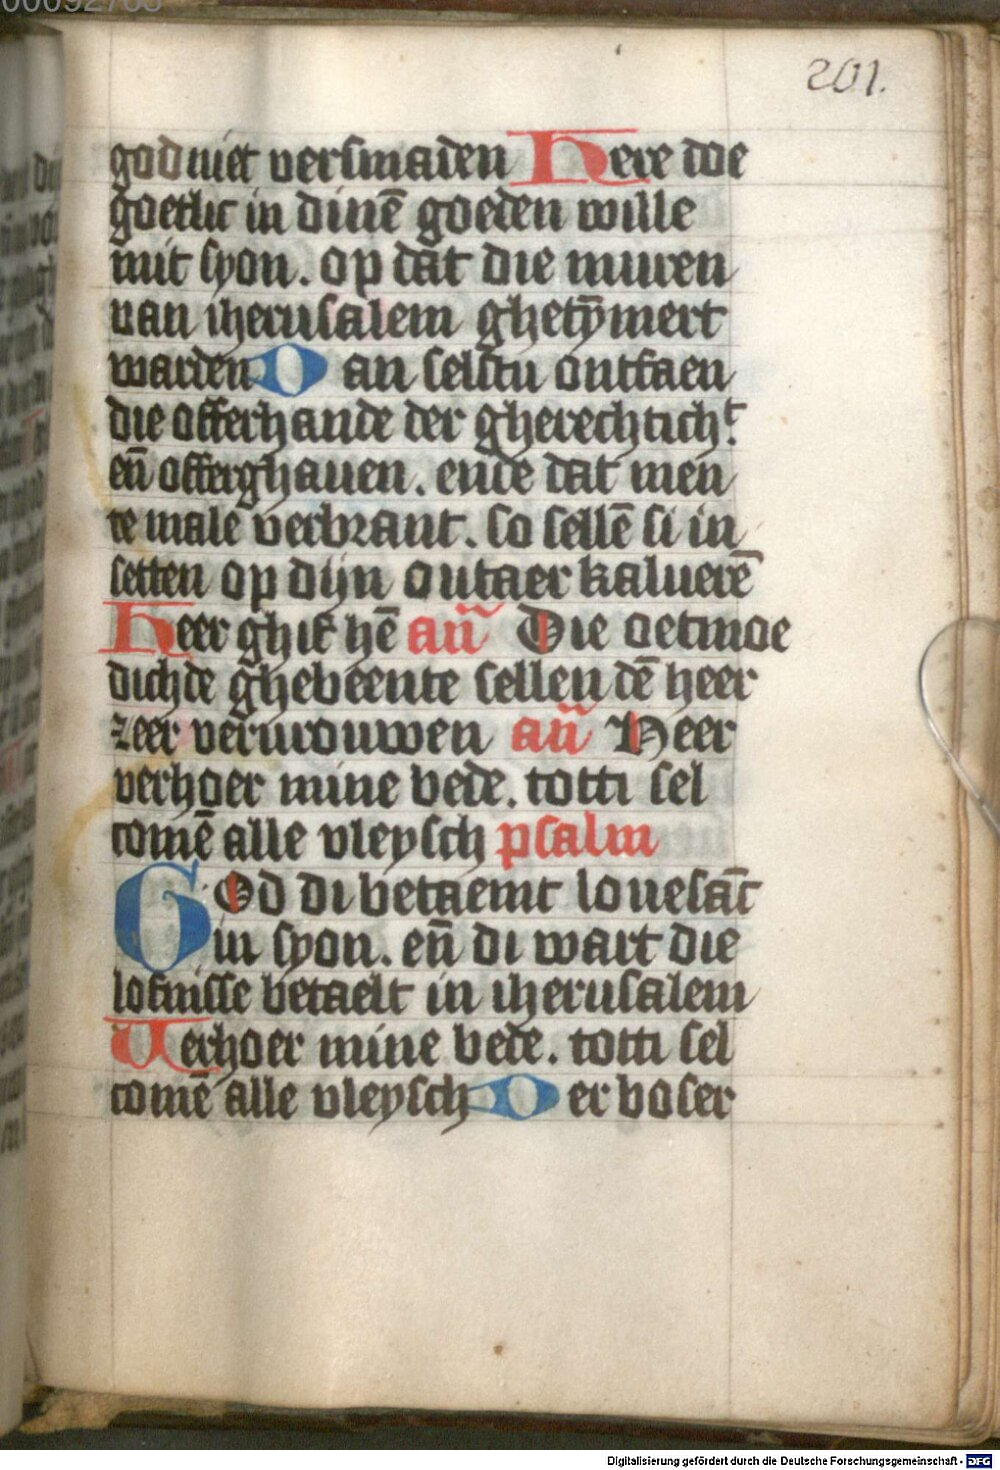 201.
god niet versmaden Here doe
goetlic in dinē goeden wille
mit syon. op dat die muren
van iherusalem ghetȳmert
warden Dan selstu ontfaen
die offerhande der gherechtich.t
eñ offerghauen. ende dat men
te male verbrant. so sellē si in
setten op dijn outaer kaluerē
Heer ghif hē añ Die oetmoe
dichde ghebeente sellen dē heer
zeer vervrouwen añ Heer
verhoer mine bede. totti sel
comē alle vleysch psalm
God di betaemt louesāc
in syon. eñ di wart die
lofnisse betaelt in iherusalem
Verhoer mine bede. totti sel
comē alle vleysch Der boser
Digitalisierung gefördert durch die Deutsche Forschungsgemeinschaft - DFG